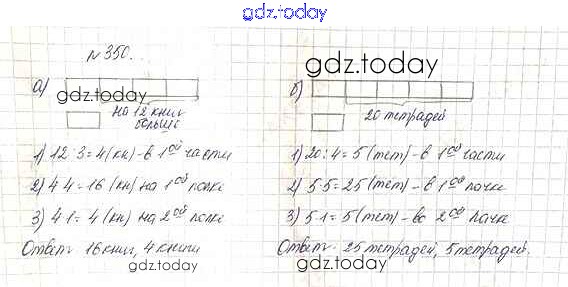 gdz.today
№350.
а)
gdz.today
на 12 книг
больше
1) 12:3=4(кн)-в 1ой части
2) 4·4=16 (кн) на 1ой полке
3) 4·1=4(кн) на 2ой полке
Ответ: 16 книг, 4 книги
gdz.today
gdz.today
б)
20 тетрадей
1) 20:4=5(тет)-в 1ой части
2) 5·5=25(тет)-в 1ой пачке
3) 5·1=5(тет)-во 2ой пачке
Ответ: 25 тетрадей, 5 тетрадей.
gdz.today